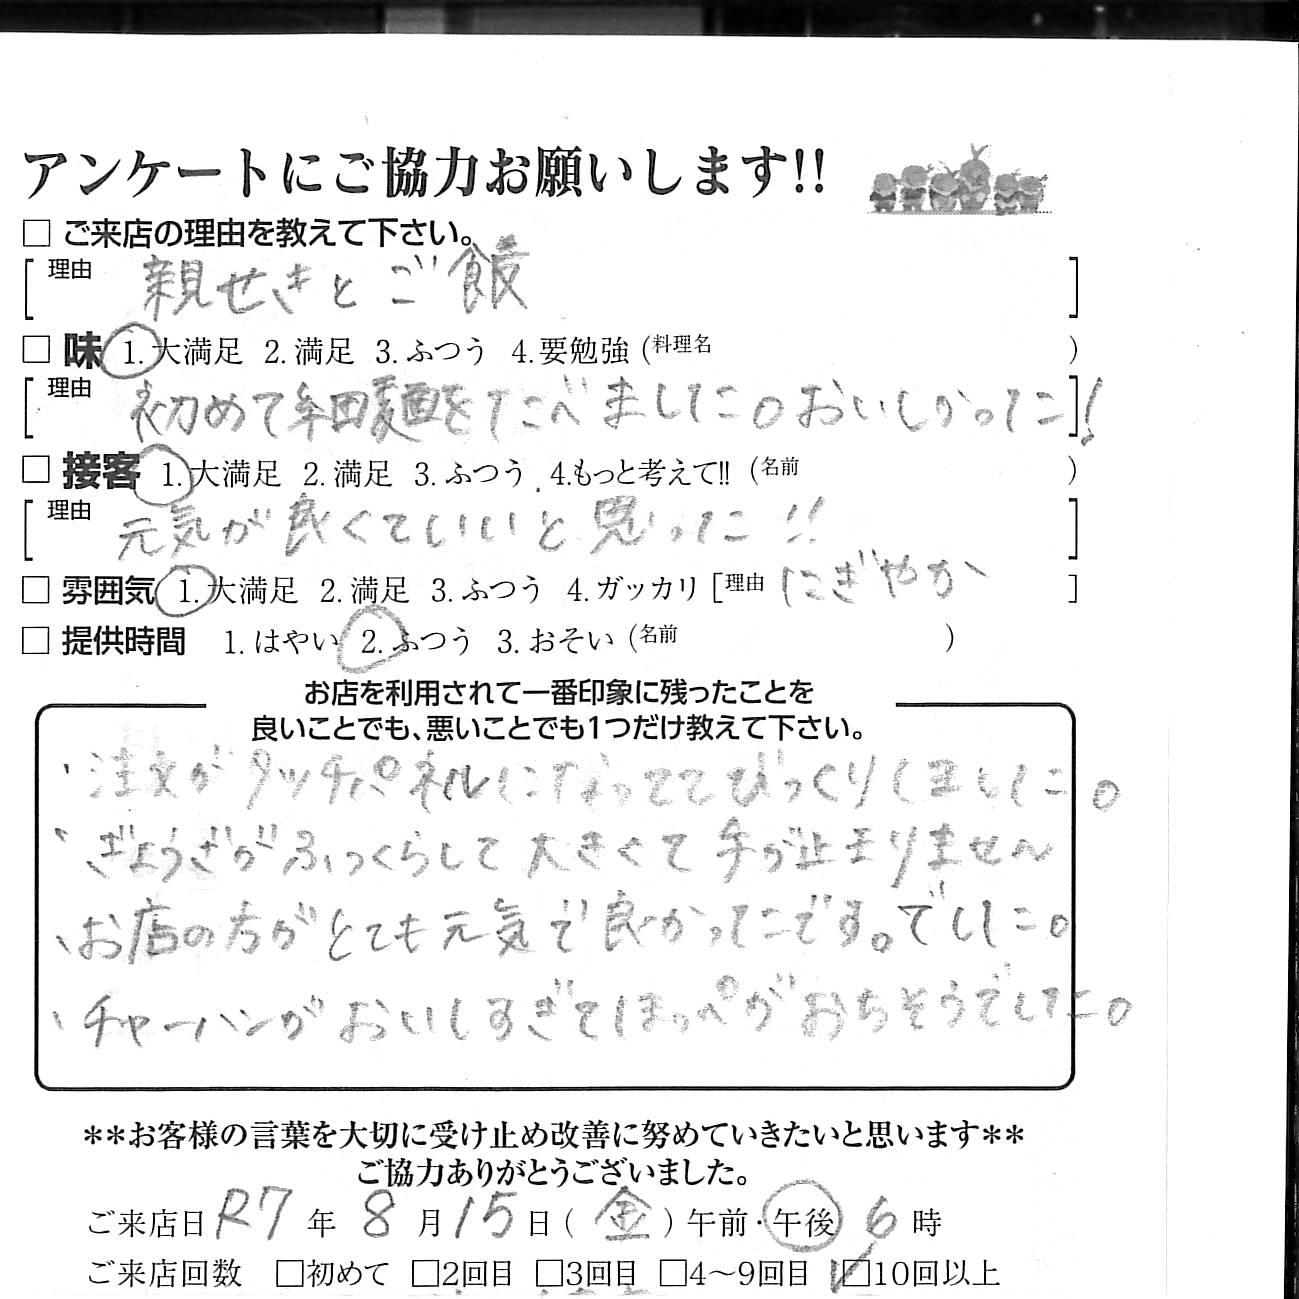 アンケートにご協力お願いします!!
□ ご来店の理由を教えて下さい。
[理由 親せきとご飯 ]
□ 味 1.大満足 2.満足 3.ふつう 4.要勉強 (料理名 )
[理由 初めて細麺をたべました。おいしかった! ]
□ 接客 1.大満足 2.満足 3.ふつう 4.もっと考えて!! (名前 )
[理由 元気が良くていいと思った!! ]
□ 雰囲気 1.大満足 2.満足 3.ふつう 4.ガッカリ [理由 にぎやか ]
□ 提供時間 1.はやい 2.ふつう 3.おそい (名前 )
お店を利用されて一番印象に残ったことを
良いことでも、悪いことでも1つだけ教えて下さい。
、注文がタッチパネルになっててびっくりしました。
、ぎょうざがふっくらして大きくて手が止まりません
、お店の方がとても元気で良かったです。でした。
、チャーハンがおいしすぎてほっぺがおちそうでした。
**お客様の言葉を大切に受け止め改善に努めていきたいと思います**
ご協力ありがとうございました。
ご来店日 R7 年 8 月 15 日 ( 金 ) 午前・午後 6 時
ご来店回数 □初めて □2回目 □3回目 □4〜9回目 ☑10回以上